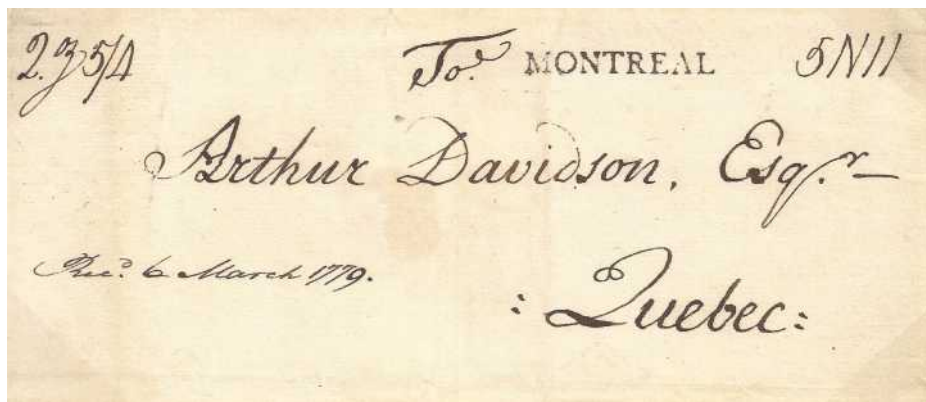 2.З 5/4 To. MONTREAL 5N11
Arthur Davidson, Esqr.—
Rec'd. 6 March 1779.
: Quebec: